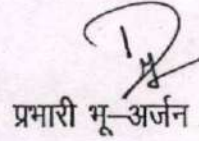 प्रभारी भू–अर्जन